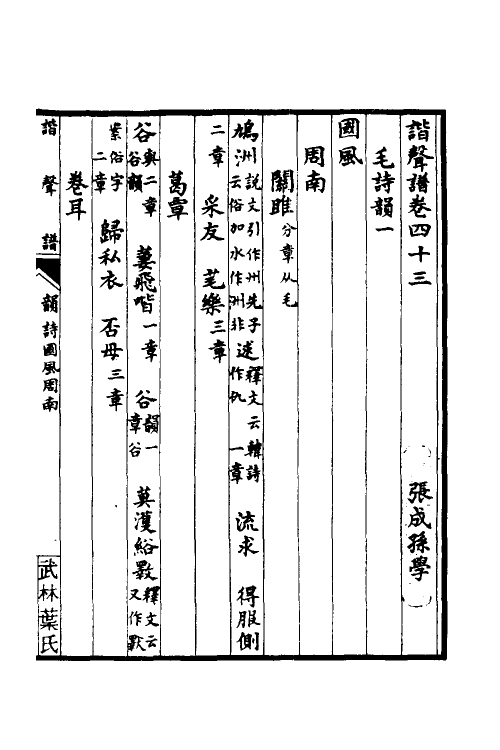 諧聲譜卷四十三 張成孫學
毛詩韻一
國風
周南
關雎 分章从毛
鳩洲說文引作州先子云俗加水作洲非逑釋文云韓詩作仇一章 流求 得服側
二章 采友 芼樂三章
葛覃
谷與二章谷韻 萋飛喈一章 谷韻一章谷 莫濩綌斁釋文云又作
案俗字二章 歸私衣 否母三章
卷耳
諧聲譜 韻詩國風周南 武林葉氏